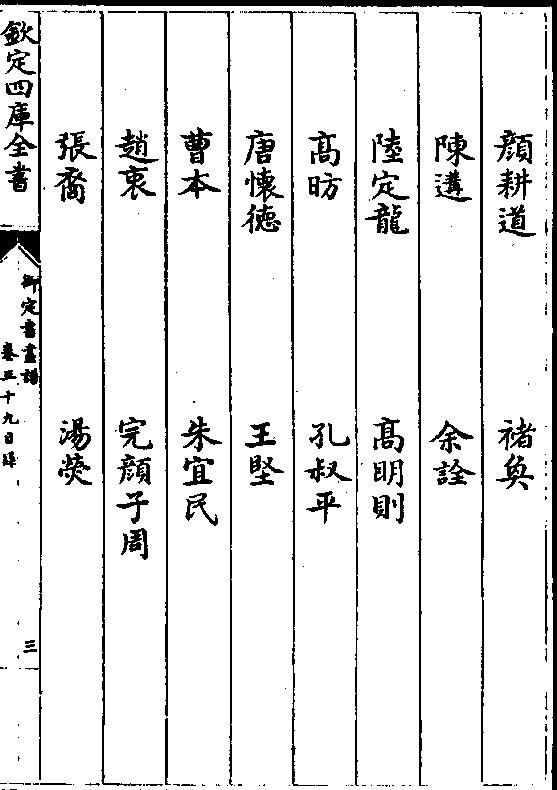 顔耕道　褚奐
陳遘　余詮
陸定龍　髙明則
髙昉　孔叔平
唐懐徳　王堅
曹本　朱宜民
趙衷　完顔子周
張裔　湯煥
欽定四庫全書
御定書畫譜
卷三十九目錄
三